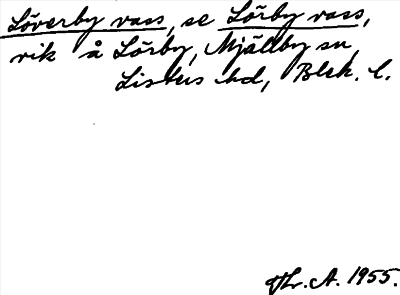 Löverby vass, se Lörby vass,
vik å Lörby, Mjällby sn,
Listers hd, Blek. l.
Thr. A. 1955.